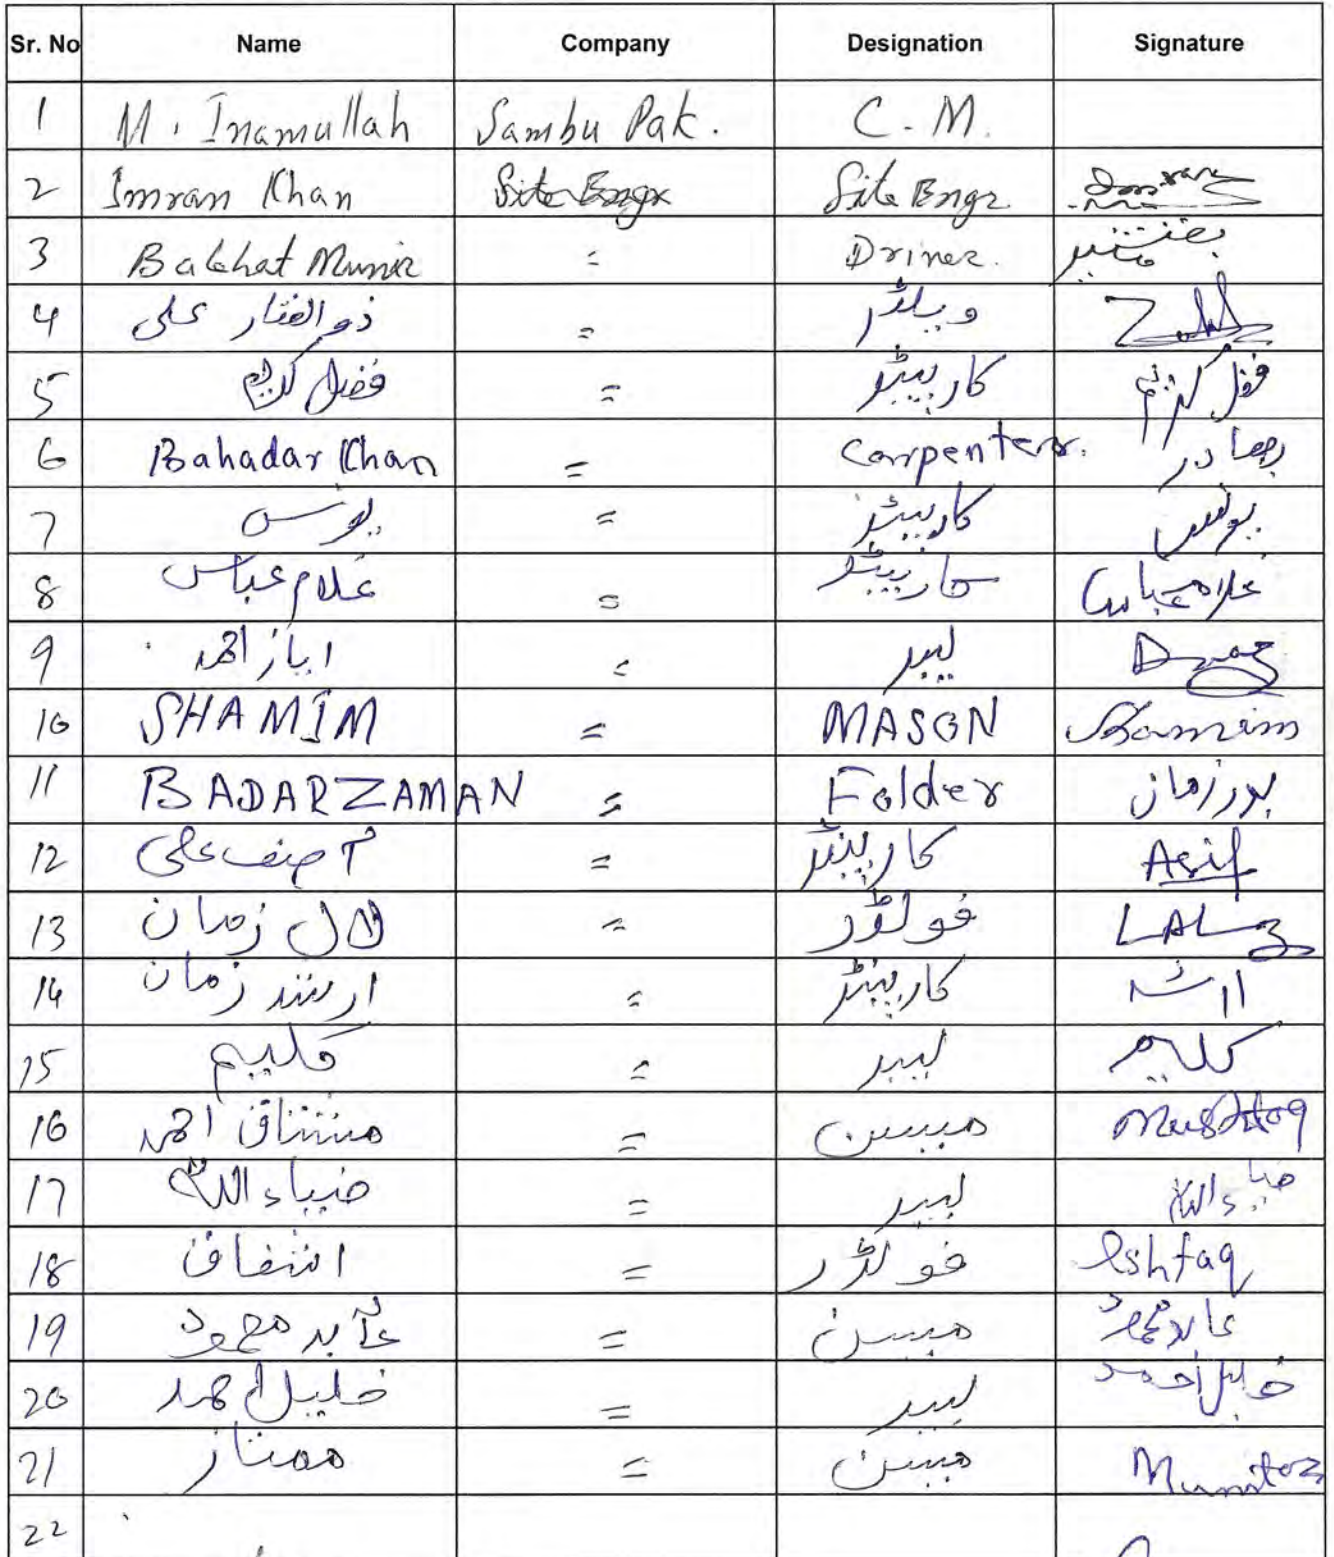 Sr. No Name Company Designation Signature
1 M. Inamullah Sambu Pak. C.M.
2 Imran Khan Site Engr Site Engr. Imran
3 Bakhat Munir = Driver. بخت منیر
4 ذوالفقار علی = ویلڈر
5 فضل کریم = کارپینٹر فضل کریم
6 Bahadar Khan = Carpenter. بھادر
7 یونس = کارپینٹر یونس
8 غلام عباس = کارپینٹر غلام عباس
9 ایاز احمد = لیبر
10 SHAMIM = MASON Shamim
11 BADARZAMAN = Folder بدرزمان
12 آصف علی = کارپینٹر Asif
13 لال زمان = فولڈر LALZ
14 ارشد زمان = کارپینٹر ارشد
15 کلیم = لیبر کلیم
16 مشتاق احمد = میسن Mushtaq
17 ضیاء اللہ = لیبر ضیاء اللہ
18 اشفاق = فولڈر Ishfaq
19 عابد محمود = میسن عابد محمود
20 خلیل احمد = لیبر خلیل احمد
21 ممتاز = میسن Mumtaz
22